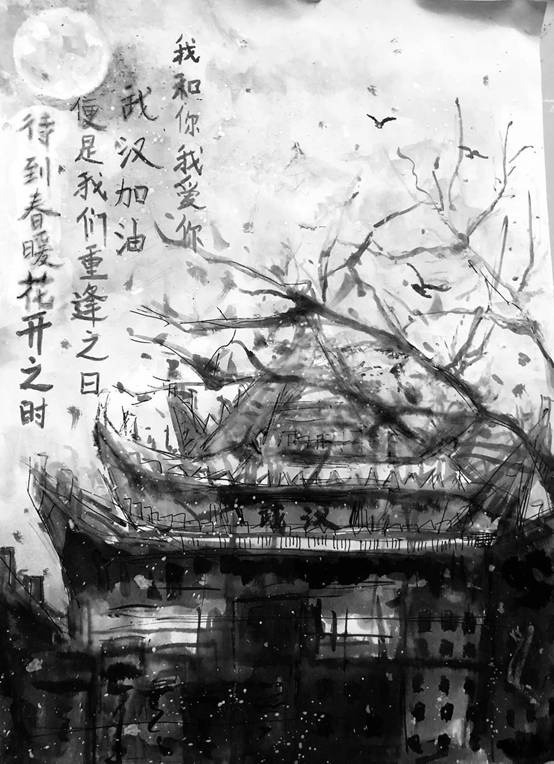 待到春暖花开之时
便是我们重逢之日
武汉加油
我和你我爱你